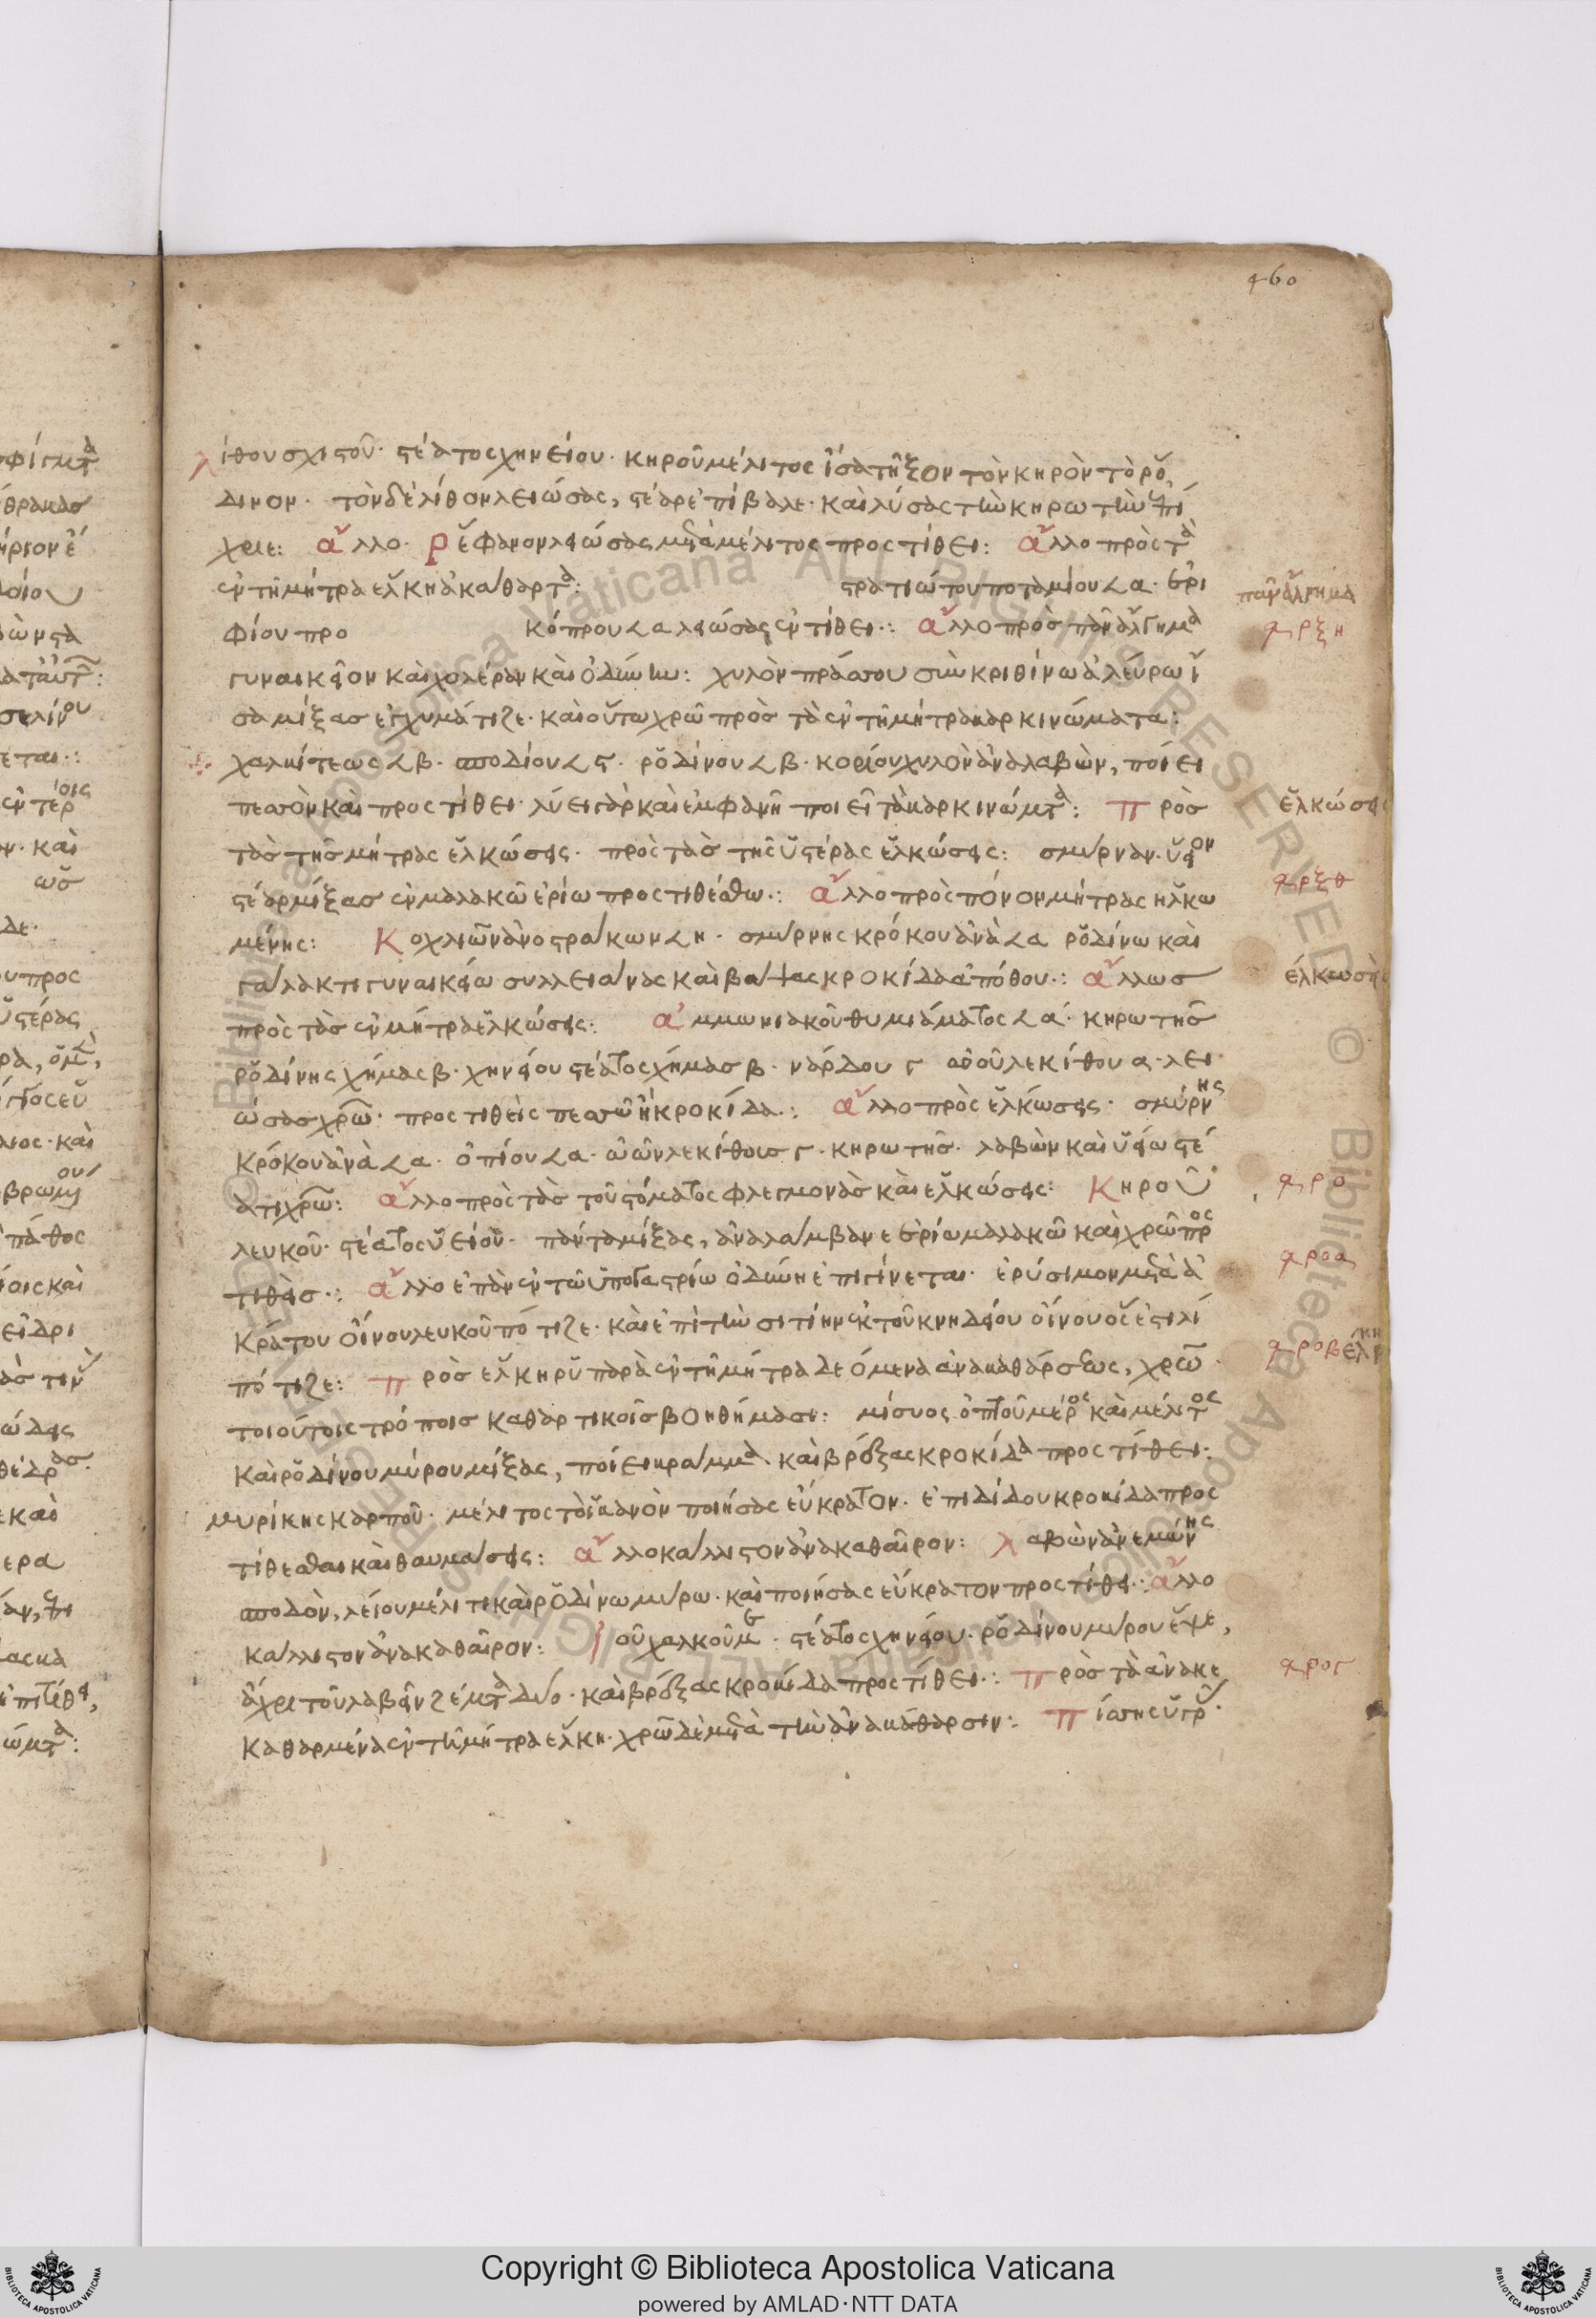 460
λίθου σχιστοῦ· στέατος χηνείου· κηροῦ μέλιτος ἴσα τῆξον τὸν κηρὸν τὸ ῥό,
δινον· τὸν δὲ λίθον λειώσας, στέαρ ἐπίβαλε· καὶ λύσας τὴν κηρωτὴν ἐπί
χριε: ἄλλο· ῥέφανον λειώσας μετὰ μέλιτος προστίθει: ἄλλο πρὸς τὰ
ἐν τῇ μήτρα ἕλκη ἀκάθαρτα: στρατιώτου ποταμίου 𐅻 α· ἐρι
φίου προ κόπρου 𐅻 α λειώσας ἐντίθει·: ἄλλο πρὸς πᾶν ἄλγημα
γυναικεῖον καὶ χολέραν καὶ ὀδύνην: χυλὸν πράσου σὺν κριθίνω ἀλεύρω ἴ
σα μίξας ἐγχυμάτιζε· καὶ οὕτω χρῶ πρὸς τὰ ἐν τῇ μήτρα καρκινώματα:
χαλκίτεως 𐅻 β· σποδίου 𐅻 ϛ· ῥοδίνου 𐅻 β· κορίου χυλὸν ἀναλαβὼν, ποίει
πεσσὸν καὶ προστίθει· λύει γὰρ καὶ ἐμφανῆ ποιεῖ τὰ καρκινώματα: πρὸς
τὰς τῆς μήτρας ἑλκώσεις· πρὸς τὰς τῆς ὑστέρας ἑλκώσεις: σμύρναν· ὕειον
στέαρ μίξας ἐν μαλακῶ ἐρίω προστιθέσθω·: ἄλλο πρὸς πόνον μήτρας ἡλκω
μένης: κοχλιῶν ἀνοστράκων 𐅻 η· σμύρνης κρόκου ἀνὰ 𐅻 α ῥοδίνω καὶ
γάλακτι γυναικείω συλλειάνας καὶ βάψας κροκίδα ἀπόθου·: ἄλλως
πρὸς τὰς ἐν μήτρα ἑλκώσεις: ἀμμωνιακοῦ θυμιάματος 𐅻 α· κηρωτῆς
ῥοδίνης χήμας β· χηνείου στέατος χήμας β· νάρδου γ ὠοῦ λεκίθου α· λει
ώσας χρῶ· προστιθεὶς πεσσῶ ἢ κροκίδα·: ἄλλο πρὸς ἑλκώσεις· σμύρνης
κρόκου ἀνὰ 𐅻 α· ὀπίου 𐅻 α· ὠῶν λεκίθοις γ· κηρωτῆς· λαβὼν καὶ ὑείω στέ
ατι χρῶ: ἄλλο πρὸς τὰς τοῦ στόματος φλεγμονὰς καὶ ἑλκώσεις: κηροῦ
λευκοῦ· στέατος ὑείου· πάντα μίξας, ἀναλάμβανε ἐρίω μαλακῶ καὶ χρῶ προς
τιθεὶς·: ἄλλο ἐπὰν ἐν τῶ ὑπογαστρίω ὀδύνη ἐπιγίνεται· ἐρύσιμον μετὰ ἀ
κράτου οἴνου λευκοῦ πότιζε· καὶ ἐπὶ τὴν σιτίην ἐκ τοῦ κνηδείου οἴνου ὅς ἐστι λί
πότιζε: πρὸς ἕλκη ῥυπαρὰ ἐν τῇ μήτρα δεόμενα ἀνακαθάρσεως, χρῶ
τοιούτοις τρόποις καθαρτικοῖς βοηθήμασι: μίσυος ὀπτοῦ μέρος καὶ μέλιτος
καὶ ῥοδίνου μύρου μίξας, ποίει κράμμα· καὶ βρέξας κροκίδα προστίθει:
μυρίκης καρποῦ· μέλιτος τὸ ἱκανὸν ποιήσας εὔκρατον· ἐπιδίδου κροκίδα προς
τίθεσθαι καὶ θαυμάσεις: ἄλλο κάλλιστον ἀνακαθαῖρον: λαβὼν ἀνεμώνης
σποδὸν, λείου μέλιτι καὶ ῥοδίνω μύρω· καὶ ποιήσας εὔκρατον προστίθει·: ἄλλο
κάλλιστον ἀνακαθαῖρον: ἰοῦ χαλκοῦ · στέατος χηνείου· ῥοδίνου μύρου ἕψε,
ἄχρι τοῦ λαβεῖν ζέματα δύο· καὶ βρέξας κροκίδα προστίθει·: πρὸς τὰ ἀνακε
καθαρμένα ἐν τῇ μήτρα ἕλκη· χρῶ δὲ μετὰ τὴν ἀνακάθαρσιν: πίσσης ὑγρ·
πᾶν ἄλγημα
ϥρξη
ἑλκώσεις
ϥρξθ
ἑλκώσεις
ϥρο
ϥροα
ϥροβ ἕλκη
ϥρογ
Copyright © Biblioteca Apostolica Vaticana
powered by AMLAD·NTT DATA